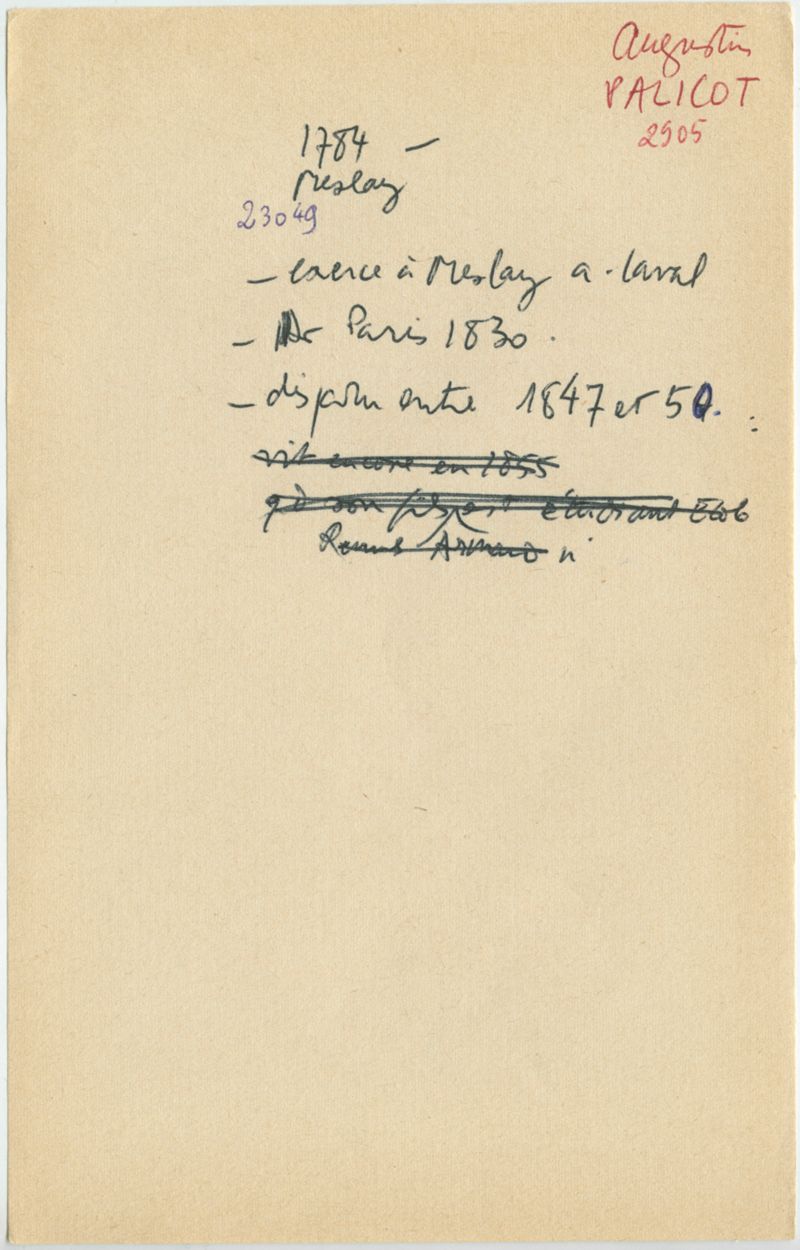 Augustin
PALICOT
2905
1784 –
Meslay
23049
– exerce à Meslay a - Laval
– Dr Paris 1830.
– disparu entre 1847 et 50.
vit encore en 1855
qd son fils est étudiant